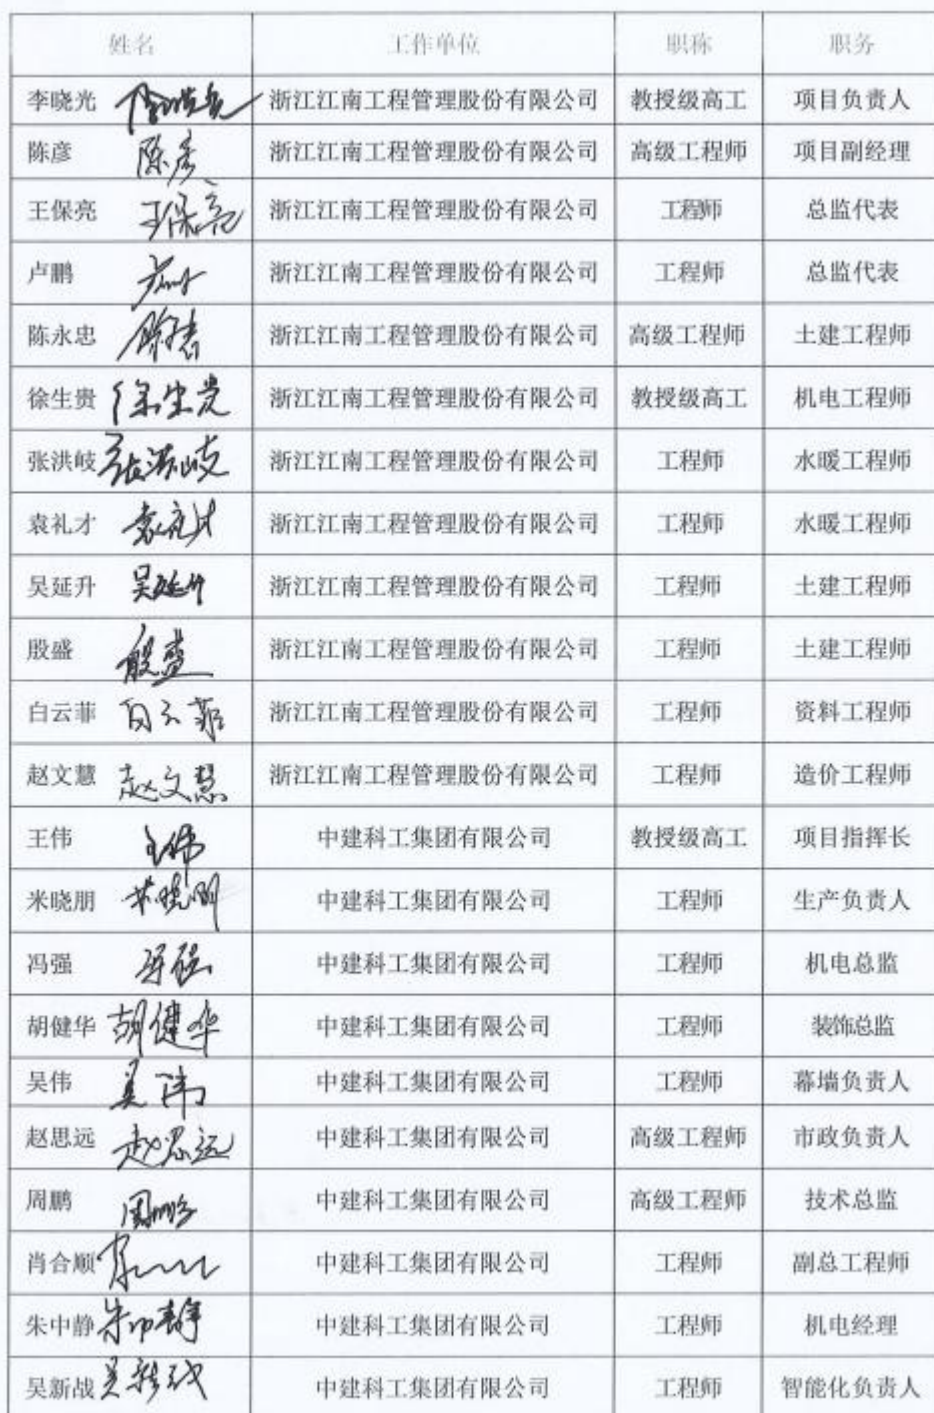 姓名 工作单位 职称 职务
李晓光 浙江江南工程管理股份有限公司 教授级高工 项目负责人
陈彦 陈彦 浙江江南工程管理股份有限公司 高级工程师 项目副经理
王保亮 王保亮 浙江江南工程管理股份有限公司 工程师 总监代表
卢鹏 浙江江南工程管理股份有限公司 工程师 总监代表
陈永忠 浙江江南工程管理股份有限公司 高级工程师 土建工程师
徐生贵 徐生贵 浙江江南工程管理股份有限公司 教授级高工 机电工程师
张洪岐 张洪岐 浙江江南工程管理股份有限公司 工程师 水暖工程师
袁礼才 袁礼才 浙江江南工程管理股份有限公司 工程师 水暖工程师
吴延升 吴延升 浙江江南工程管理股份有限公司 工程师 土建工程师
殷盛 殷盛 浙江江南工程管理股份有限公司 工程师 土建工程师
白云菲 白云菲 浙江江南工程管理股份有限公司 工程师 资料工程师
赵文慧 赵文慧 浙江江南工程管理股份有限公司 工程师 造价工程师
王伟 王伟 中建科工集团有限公司 教授级高工 项目指挥长
米晓朋 米晓朋 中建科工集团有限公司 工程师 生产负责人
冯强 冯强 中建科工集团有限公司 工程师 机电总监
胡健华 胡健华 中建科工集团有限公司 工程师 装饰总监
吴伟 吴伟 中建科工集团有限公司 工程师 幕墙负责人
赵思远 赵思远 中建科工集团有限公司 高级工程师 市政负责人
周鹏 周鹏 中建科工集团有限公司 高级工程师 技术总监
肖合顺 中建科工集团有限公司 工程师 副总工程师
朱中静 朱中静 中建科工集团有限公司 工程师 机电经理
吴新战 吴新战 中建科工集团有限公司 工程师 智能化负责人